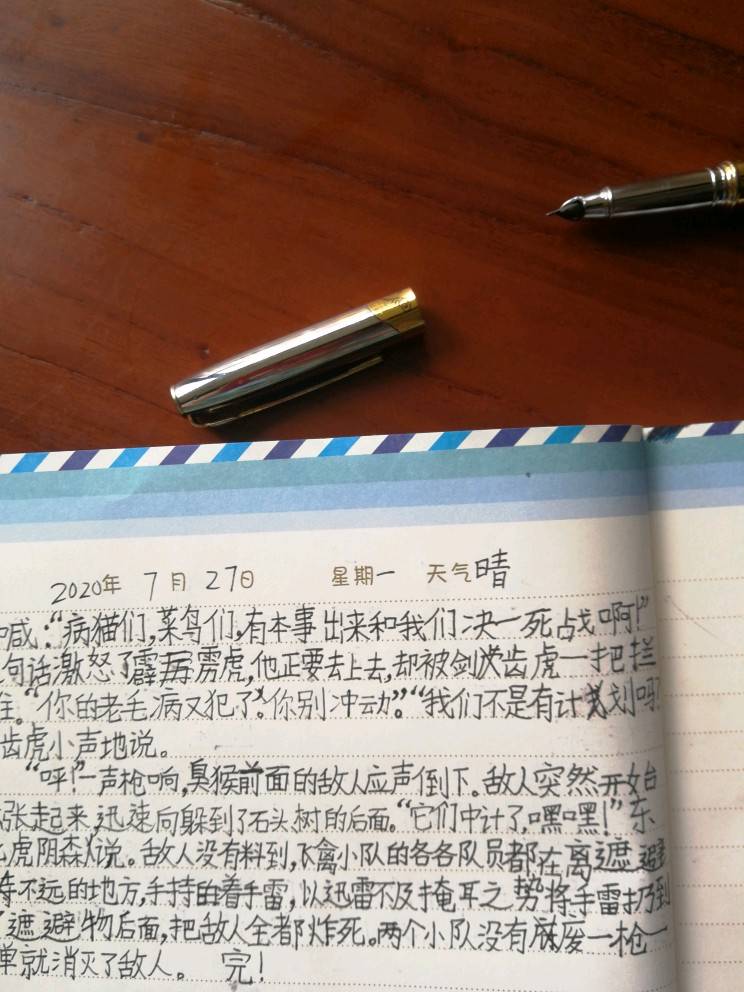 2020年 7月27日 星期一 天气晴
喊:“病猫们,菜鸟们,有本事出来和我们决一死战啊!”
句话激怒了霹雳虎,他正要去上去,却被剑齿虎一把拦
住。“你的老毛病又犯了!你别冲动。”“我们不是有计划吗?
齿虎小声地说。
“呯!”一声枪响,臭猴前面的敌人应声倒下。敌人突然开始
张起来,迅速向躲到了石头、树的后面。“它们中计了,嘿嘿!”东
虎阴森说。敌人没有料到,飞禽小队的各各队员都在离遮避
不远的地方,手持着手雷,以迅雷不及掩耳之势将手雷扔到
了遮避物后面,把敌人全都炸死。两个小队没有废一枪一
弹就消灭了敌人。 完!